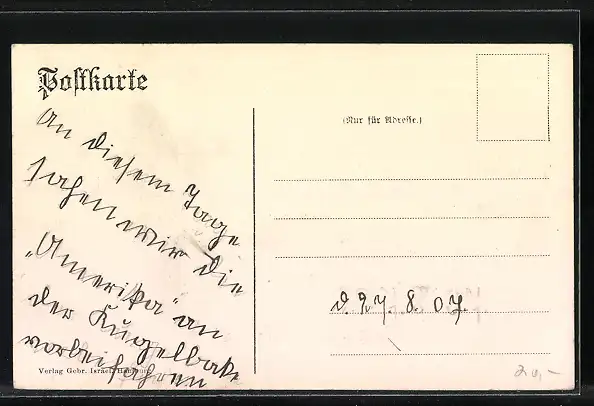 Postkarte
An diesem Tage
sahen wir die
„Amerika" an
der Kugelbake
vorbeifahren
Verlag Gebr. Israel, Hamburg
(Nur für Adresse.)
d. 27. 8. 07.
20,-